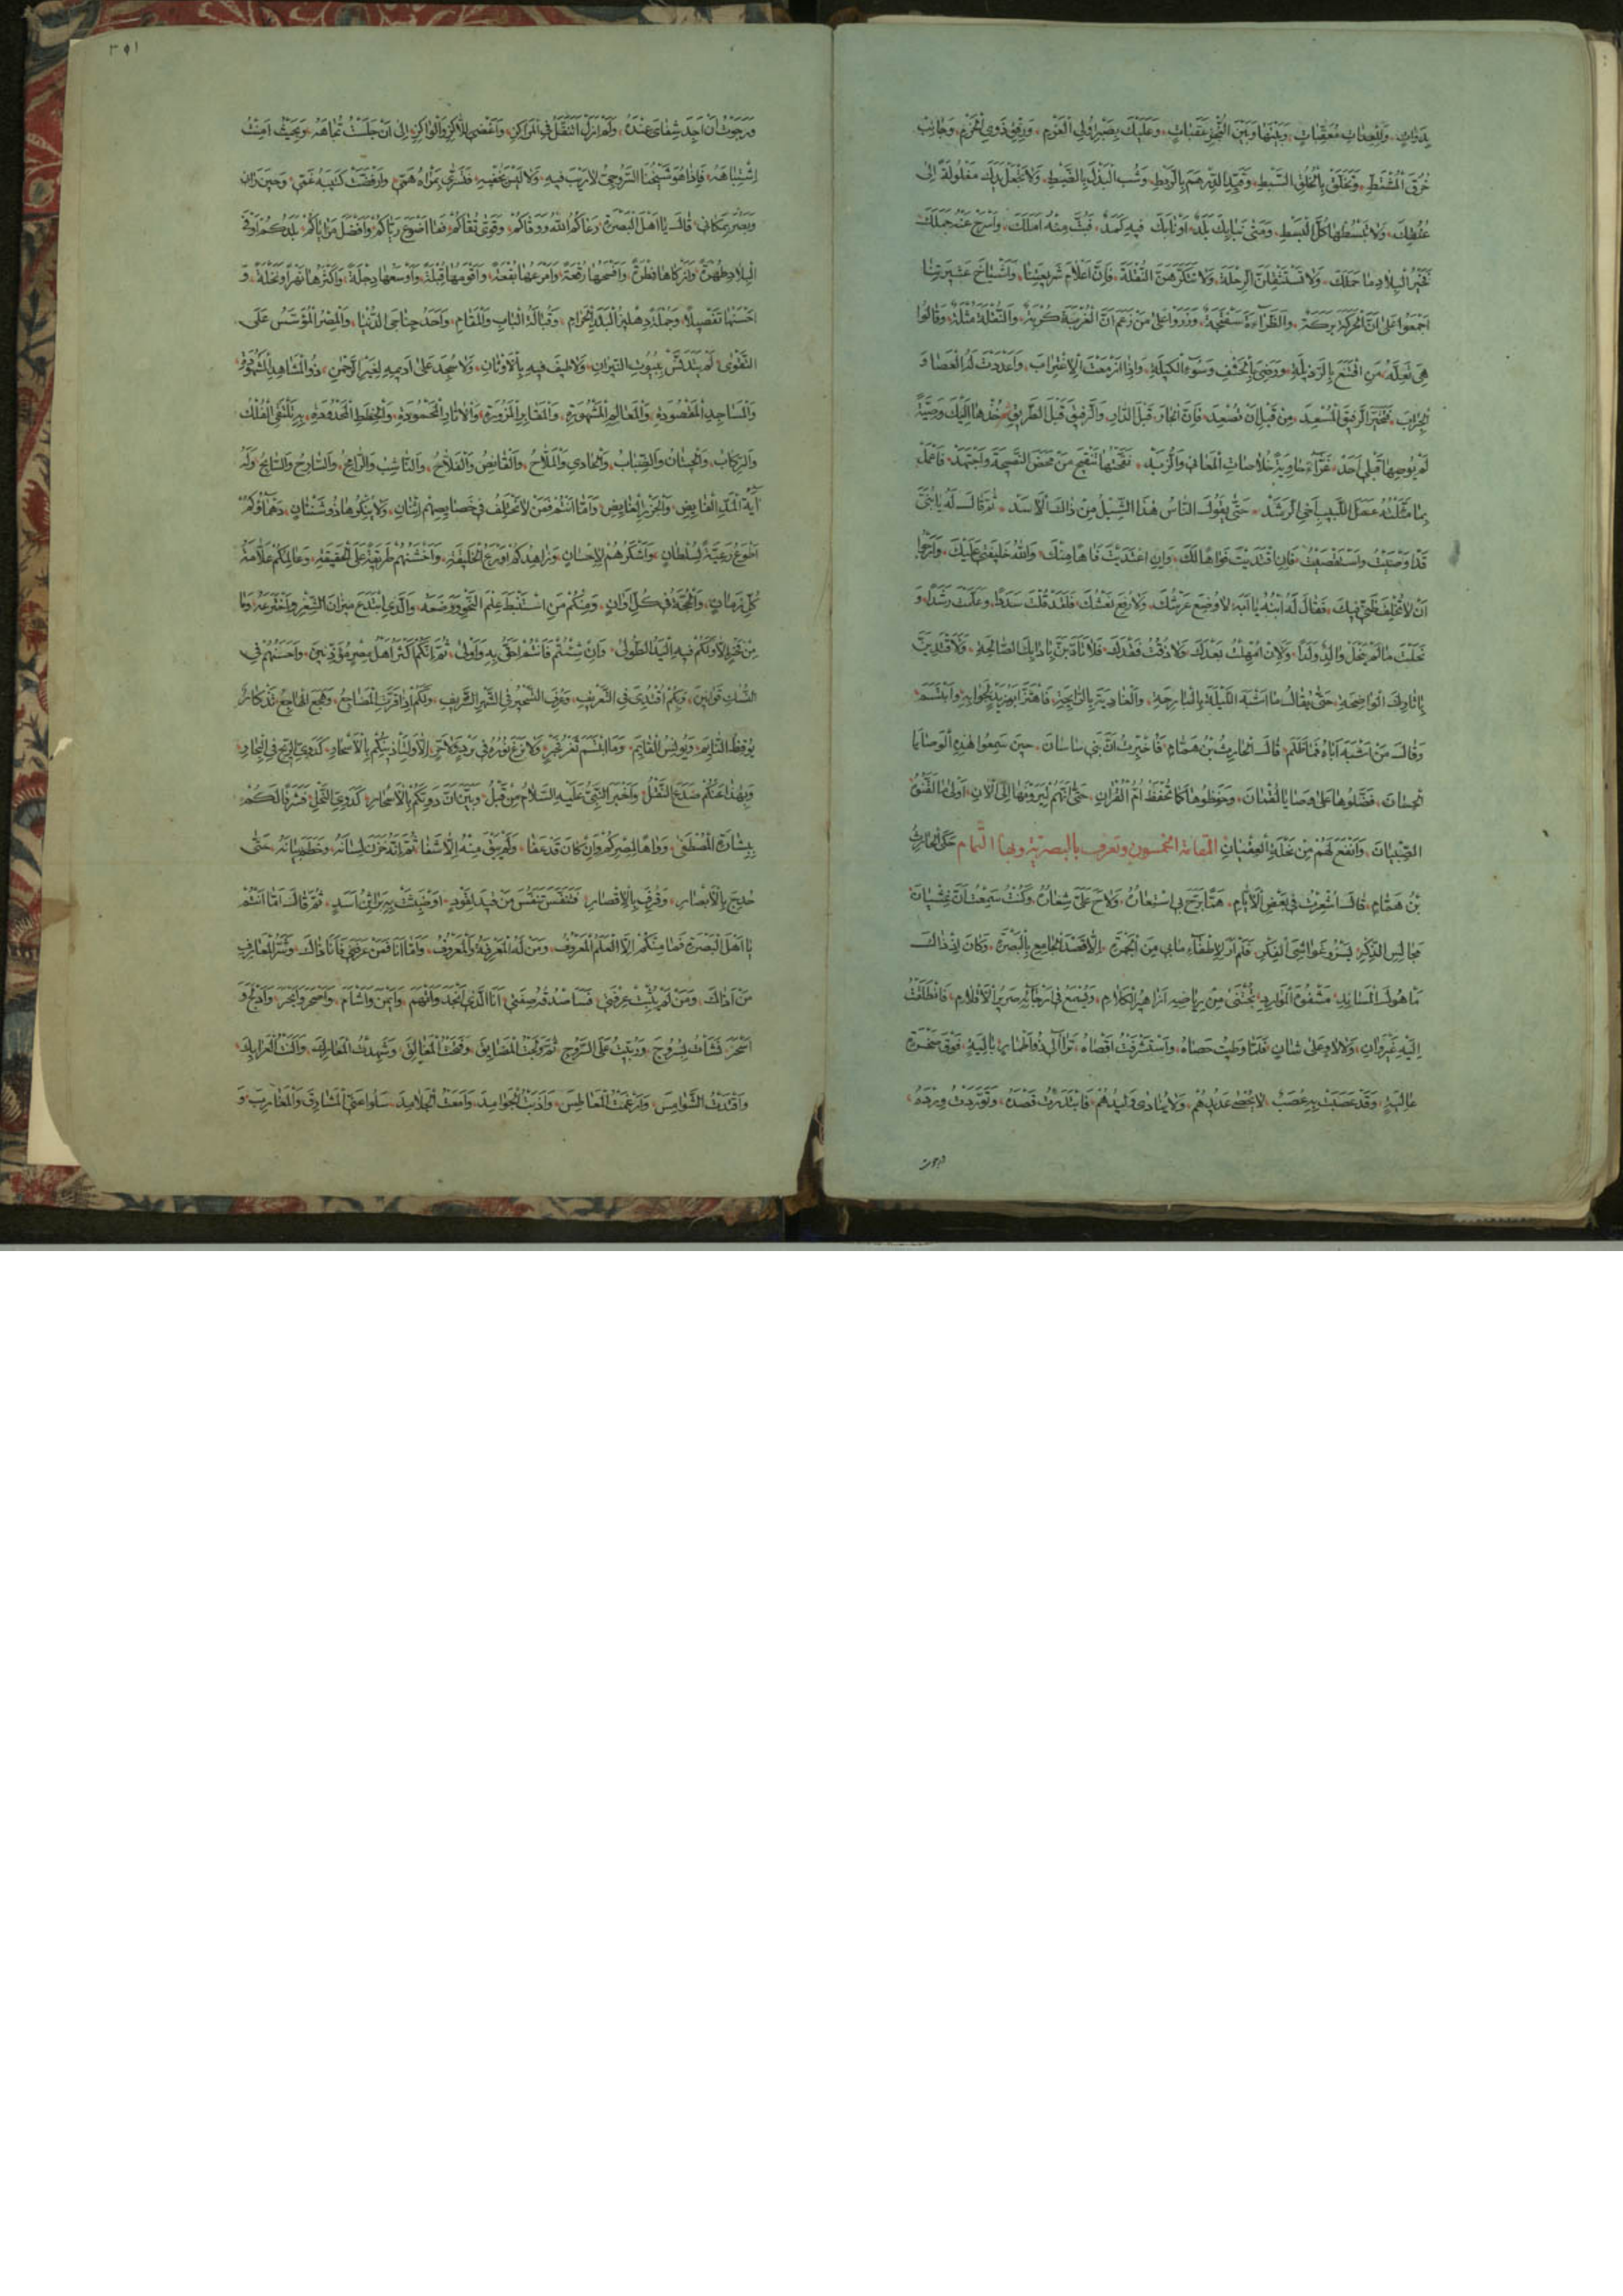 بَدَواتٍ، وَلِلْعِداتِ مُعَقِّباتٍ، وَبَيْنَها وَبَيْنَ النَّجْزِ عَقَباتٍ، وَعَلَيْكَ بِصَبْرِ اُولِى الْعَزْمِ، وَرِفْقِ ذَوِى الْحَزْمِ، وَجانِبْ
خُرْقَ الْمُشْتَطِّ، وَتَخَلَّقْ بِالْخُلُقِ السَّبْطِ، وَقَيِّدِ الدِّرْهَمَ بِالرَّبْطِ، وَشُبِ الْبَذْلَ بِالضَّبْطِ، وَلا تَجْعَلْ يَدَكَ مَغْلُولَةً اِلى
عُنُقِكَ، وَلا تَبْسُطْها كُلَّ الْبَسْطِ، وَمَتى نَبا بِكَ بَلَدٌ، اَوْ نابَكَ فيهِ كَمَدٌ، فَبُتَّ مِنْهُ اَمَلَكَ، وَاسْرَحْ عَنْهُ جَمَلَكَ
فَخَيْرُ الْبِلادِ ما حَمَلَكَ، وَلا تَسْتَثْقِلَنَّ الرِّحْلَةَ، وَلا تَكْرَهَنَّ النُّقْلَةَ، فَاِنَّ اَعْلامَ شَريعَتِنا، وَاَشْياخَ عَشيرَتِنا
اَجْمَعُوا عَلى اَنَّ الْحَرَكَةَ بَرَكَةٌ، وَالطَّراءَةَ سُفْتَجَةٌ، وَزَرَوْا عَلى مَنْ زَعَمَ اَنَّ الْغُرْبَةَ كُرْبَةٌ، وَالنُّقْلَةَ مُثْلَةٌ، وَقالُوا
هِىَ تَعِلَّةُ مَنِ اقْتَنَعَ بِالرَّذيلَةِ، وَرَضِىَ بِالْحَشَفِ وَسُوءِ الْكيلَةِ، وَاِذا اَزْمَعْتَ الْاِغْتِرابَ، وَاَعْدَدْتَ لَهُ الْعَصا وَ
الْجِرابَ، فَتَخَيَّرِ الرَّفيقَ الْمُسْعِدَ، مِنْ قَبْلِ اَنْ تُصْعِدَ، فَاِنَّ الْجارَ، قَبْلَ الدّارِ، وَالرَّفيقَ قَبْلَ الطَّريقِ، خُذْها اِلَيْكَ وَصِيَّةً
لَمْ يُوصِها قَبْلى اَحَدٌ، غَرّاءَ حاوِيَةً خُلاصاتِ الْمَعانى وَالزُّبَدْ، نَقَّحْتُها تَنْقيحَ مَنْ مَحَضَ النَّصيحَةَ وَاجْتَهَدْ، فَاعْمَلْ
بِما مَثَّلْتُهُ عَمَلَ اللَّبيبِ اَخِى الرَّشَدْ، حَتّى يَقُولَ النّاسُ هذَا الشِّبْلُ مِنْ ذاكَ الْاَسَدْ، ثُمَّ قالَ لَهُ يا بُنَىَّ
قَدْ اَوْصَيْتُ وَاسْتَقْصَيْتُ، فَاِنِ اقْتَدَيْتَ فَواهًا لَكَ، وَاِنِ اعْتَدَيْتَ فَاهًا مِنْكَ، وَاللّهُ خَليفَتى عَلَيْكَ، وَاَرْجُو
اَنْ لا تُخْلِفَ ظَنّى فيكَ، فَقالَ لَهُ ابْنُهُ يا اَبَهْ لا وُضِعَ عَرْشُكَ، وَلا رُفِعَ نَعْشُكَ، فَلَقَدْ قُلْتَ سَدَدًا، وَعَلَّمْتَ رَشَدًا، وَ
نَحَلْتَ ما لَمْ يَنْحَلْ والِدٌ وَلَدًا، وَلَاِنْ اُمْهِلْتُ بَعْدَكَ، وَلا ذُقْتُ فَقْدَكَ، فَلَاَتَاَدَّبَنَّ بِادابِكَ الصّالِحَةِ، وَلَاَقْتَدِيَنَّ
بِاثارِكَ الْواضِحَةِ، حَتّى يُقالَ ما اَشْبَهَ اللَّيْلَةَ بِالْبارِحَةِ، وَالْغادِيَةَ بِالرّائِحَةِ، فَاهْتَزَّ اَبُو زَيْدٍ لِجَوابِهِ وَابْتَسَمَ
وَقالَ مَنْ اَشْبَهَ اَباهُ فَما ظَلَمَ، قالَ الْحارِثُ بْنُ هَمّامٍ، فَاُخْبِرْتُ اَنَّ بَنى ساسانَ، حينَ سَمِعُوا هذِهِ الْوَصايا
الْحِسانَ، فَضَّلُوها عَلى وَصايا لُقْمانَ، وَحَفِظُوها كَما تُحْفَظُ اُمُّ الْقُرْانِ، حَتّى اَنَّهُمْ لَيَرَوْنَها اِلَى الْانِ، اَوْلى ما لَقَّنُوهُ
الصِّبْيانَ، وَاَنْفَعَ لَهُمْ مِنْ نِحْلَةِ الْعِقْيانِ المقامة الخمسون وتعرف بالبصرية وبها التمام حَكَى الْحارِثُ
بْنُ هَمّامٍ، قالَ اُشْعِرْتُ فى بَعْضِ الْاَيّامِ، هَمًّا بَرَّحَ بِى اسْتِعارُهُ، وَلاحَ عَلَىَّ شِعارُهُ، وَكُنْتُ سَمِعْتُ اَنَّ غِشْيانَ
مَجالِسِ الذِّكْرِ، يَسْرُو غَواشِىَ الْفِكْرِ، فَلَمْ اَرَ لِاِطْفاءِ ما بى مِنَ الْجَمْرَةِ، اِلّا قَصْدَ الْجامِعِ بِالْبَصْرَةِ، وَكانَ اِذْ ذاكَ
مَاْهُولَ الْمَسانِدِ، مَشْفُوهَ الْمَوارِدِ، يُجْتَنى مِنْ رِياضِهِ اَزاهيرُ الْكَلامِ، وَيُسْمَعُ فى اَرْجائِهِ صَريرُ الْاَقْلامِ، فَانْطَلَقْتُ
اِلَيْهِ غَيْرَ وانٍ، وَلا لاوٍ عَلى شانٍ، فَلَمّا وَطِئْتُ حَصاهُ، وَاسْتَشْرَفْتُ اَقْصاهُ، تَراءى لى ذُو اَطْمارٍ بالِيَةٍ، فَوْقَ صَخْرَةٍ
عالِيَةٍ، وَقَدْ عَصَبَتْ بِهِ عُصَبٌ، لا يُحْصى عَديدُهُمْ، وَلا يُنادى وَليدُهُمْ، فَابْتَدَرْتُ قَصْدَهُ، وَتَوَرَّدْتُ وِرْدَهُ،
ورجوت
٣٥١
وَرَجَوْتُ اَنْ اَجِدَ شِفاىَ عِنْدَهُ، وَلَمْ اَزَلْ اَتَنَقَّلُ فِى الْمَراكِزِ، وَاُغْضى لِلّاكِزِ وَالْواكِزِ، اِلى اَنْ جَلَسْتُ تُجاهَهُ، وَبِحَيْثُ اَمِنْتُ
اشْتِباهَهُ، فَاِذا هُوَ شَيْخُنَا السَّرُوجِىُّ لا رَيْبَ فيهِ، وَلا لَبْسَ يُخْفيهِ، فَتَسَرّى بِمَرْاهُ هَمّى، وَارْفَضَّتْ كَتيبَةُ غَمّى، وَحينَ رَانى
وَبَصُرَ بِمَكانى، قالَ يا اَهْلَ الْبَصْرَةِ، رَعاكُمُ اللّهُ وَوَقاكُمْ، وَقَوّى تُقاكُمْ، فَما اَضْوَعَ رَيّاكُمْ، وَاَفْضَلَ مَزاياكُمْ، بَلَدُكُمْ اَوْفَى
الْبِلادِ طُهْرَةً، وَاَزْكاها فِطْرَةً، وَاَفْسَحُها رُقْعَةً، وَاَمْرَعُها نُجْعَةً، وَاَقْوَمُها قِبْلَةً، وَاَوْسَعُها دِجْلَةً، وَاَكْثَرُها نَهْرًا وَنَخْلَةً، وَ
اَحْسَنُها تَفْصيلًا وَجُمْلَةً، دِهْليزُ الْبَلَدِ الْحَرامِ، وَقُبالَةُ الْبابِ وَالْمَقامِ، وَاَحَدُ جَناحَىِ الدُّنْيا، وَالْمِصْرُ الْمُؤَسَّسُ عَلَى
التَّقْوى، لَمْ يَتَدَنَّسْ بِبُيُوتِ النّيرانِ، وَلا طيفَ فيهِ بِالْاَوْثانِ، وَلا سُجِدَ عَلى اَديمِهِ لِغَيْرِ الرَّحْمنِ، ذُو الْمَشاهِدِ الْمَشْهُودَةِ،
وَالْمَساجِدِ الْمَقْصُودَةِ، وَالْمَعالِمِ الْمَشْهُورَةِ، وَالْمَقابِرِ الْمَزُورَةِ، وَالْاثارِ الْمَحْمُودَةِ، وَالْخِطَطِ الْمَحْدُودَةِ، بِهِ تَلْتَقِى الْفُلْكُ
وَالرِّكابُ، وَالْحيتانُ وَالضِّبابُ، وَالْحادى وَالْمَلّاحُ، وَالْقانِصُ وَالْفَلّاحُ، وَالنّاشِبُ وَالرّامِحُ، وَالسّارِحُ وَالسّابِحُ، وَلَهُ
ايَةُ الْمَدِّ الْفائِضِ، وَالْجَزْرِ الْغائِضِ، وَاَمّا اَنْتُمْ فَمِمَّنْ لا يَخْتَلِفُ فى خَصائِصِهِمُ اثْنانِ، وَلا يُنْكِرُها ذُو شَنَئانٍ، دَهْماؤُكُمْ
اَطْوَعُ رَعِيَّةٍ لِسُلْطانٍ، وَاَشْكَرُهُمْ لِاِحْسانٍ، وَزاهِدُكُمْ اَوْرَعُ الْخَليقَةِ، وَاَحْسَنُهُمْ طَريقَةً عَلَى الْحَقيقَةِ، وَعالِمُكُمْ عَلّامَةُ
كُلِّ زَمانٍ، وَالْحُجَّةُ فى كُلِّ اَوانٍ، وَمِنْكُمْ مَنِ اسْتَنْبَطَ عِلْمَ النَّحْوِ وَوَضَعَهُ، وَالَّذِى ابْتَدَعَ ميزانَ الشِّعْرِ وَاخْتَرَعَهُ، وَما
مِنْ فَخْرٍ اِلّا وَلَكُمْ فيهِ الْيَدُ الطُّولى، وَاِنْ شِئْتُمْ فَاَنْتُمْ اَحَقُّ بِهِ وَاَوْلى، ثُمَّ اِنَّكُمْ اَكْثَرُ اَهْلِ مِصْرٍ مُؤَذِّنينَ، وَاَحْسَنُهُمْ فِى
النُّسْكِ قَوانينَ، وَبِكُمُ اقْتُدِىَ فِى التَّعْريفِ، وَعُرِفَ التَّسْحيرُ فِى الشَّهْرِ الشَّريفِ، وَلَكُمْ اِذا قَرَّتِ الْمَضاجِعُ، وَهَجَعَ الْهاجِعُ، تَذْكارٌ
يُوقِظُ النّائِمَ، وَيُونِسُ الْقائِمَ، وَمَا ابْتَسَمَ ثَغْرُ فَجْرٍ، وَلا بَزَغَ نُورُهُ فى بَرْدٍ وَلا حَرٍّ، اِلّا وَلِتَاْذينِكُمْ بِالْاَسْحارِ، كَدَوِىِّ الرّيحِ فِى الْبِحارِ،
وَبِهذا عَنْكُمْ صَدَعَ النَّقْلُ، وَاَخْبَرَ النَّبِىُّ عَلَيْهِ السَّلامُ مِنْ قَبْلُ، وَبَيَّنَ اَنَّ دَوِيَّكُمْ بِالْاَسْحارِ، كَدَوِىِّ النَّحْلِ، فَشَرَفًا لَكُمْ
بِبِشارَةِ الْمُصْطَفى، وَواهًا لِمِصْرِكُمْ وَاِنْ كانَ قَدْ عَفا، وَلَمْ يَبْقَ مِنْهُ اِلّا شَفا، ثُمَّ اِنَّهُ خَزَنَ لِسانَهُ، وَخَطَمَ بَيانَهُ، حَتّى
حُدِجَ بِالْاَبْصارِ، وَقُرِفَ بِالْاِقْصارِ، فَتَنَفَّسَ تَنَفُّسَ مَنْ قيدَ لِقَوَدٍ، اَوْ ضَبَثَتْ بِهِ بَراثِنُ اَسَدٍ، ثُمَّ قالَ اَمّا اَنْتُمْ
يا اَهْلَ الْبَصْرَةِ فَما مِنْكُمْ اِلَّا الْعَلَمُ الْمَعْرُوفُ، وَمَنْ لَهُ الْمَعْرِفَةُ وَالْمَعْرُوفُ، وَاَمّا اَنَا فَمَنْ عَرَفَنى فَاَنَا ذاكَ، وَشَرُّ الْمَعارِفِ
مَنْ اذاكَ، وَمَنْ لَمْ يُثْبِتْ عِرْفَتى، فَسَاَصْدُقُهُ صِفَتى، اَنَا الَّذى اَنْجَدَ وَاَتْهَمَ، وَاَيْمَنَ وَاَشْاَمَ، وَاَصْحَرَ وَاَبْحَرَ، وَاَدْلَجَ وَ
اَسْحَرَ، نَشَاْتُ بِسَرُوجَ، وَرُبّيتُ عَلَى السُّرُوجِ، ثُمَّ وَلَجْتُ الْمَضايِقَ، وَفَتَحْتُ الْمَغالِقَ، وَشَهِدْتُ الْمَعارِكَ، وَاَلَنْتُ الْعَرائِكَ،
وَاقْتَدْتُ الشَّوامِسَ، وَاَرْغَمْتُ الْمَعاطِسَ، وَاَذَبْتُ الْجَوامِدَ، وَاَمَعْتُ الْجَلامِدَ، سَلُوا عَنِّى الْمَشارِقَ وَالْمَغارِبَ، وَ